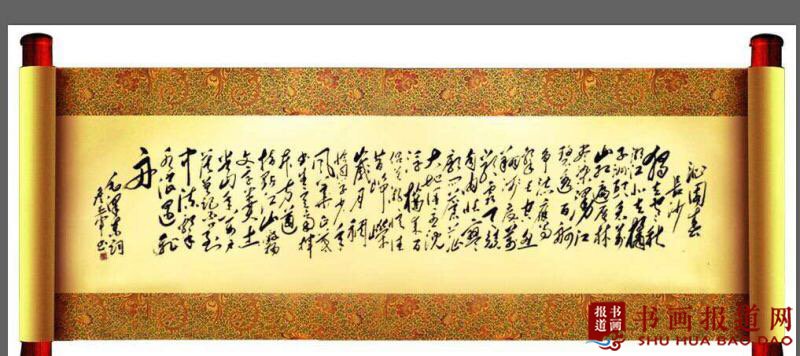 沁园春
长沙
独立寒秋
湘江北去橘
子洲头看万
山红遍层林
尽染漫江
碧透百舸
争流鹰击
长空鱼
翔浅底万
类霜天竞
自由怅寥
廓问苍茫
大地谁主沉
浮携来百
侣曾游忆往
昔峥嵘
岁月稠
恰同学少年
风华正茂
书生意气挥
斥方遒
指点江山激扬
文字粪土
当年万户
侯曾记否到
中流击
水浪遏飞
舟
毛泽东词
书画
报道
书画报道网
SHU HUA BAO DAO